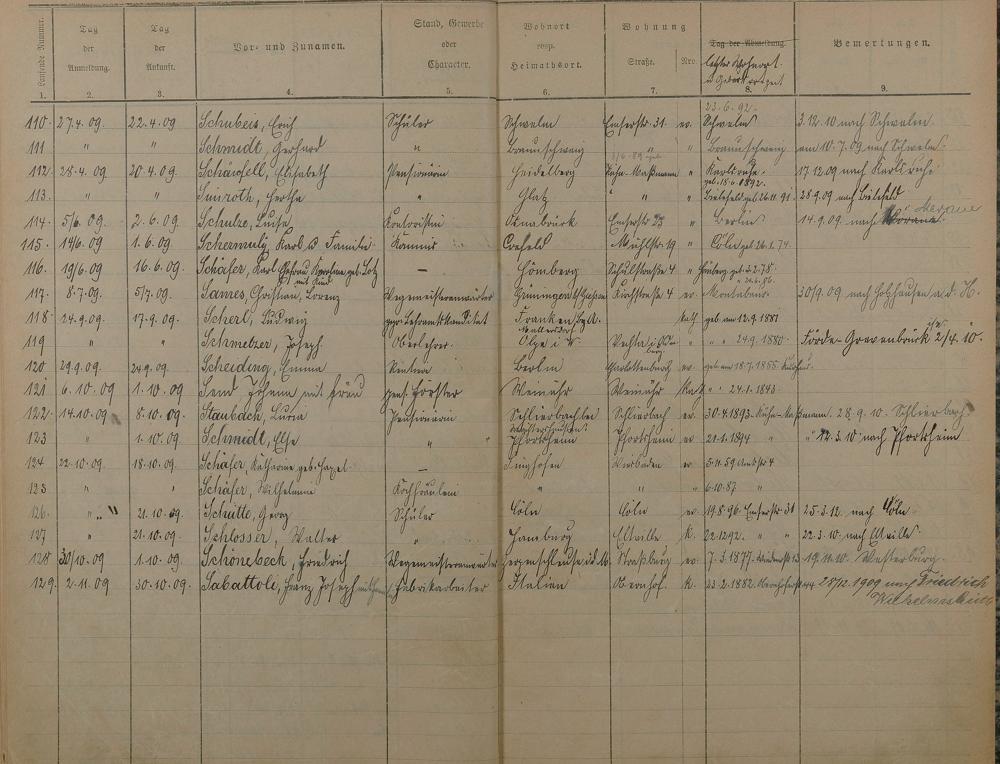 Laufende Nummer. Tag der Anmeldung. Tag der Ankunft. Vor- und Zunamen. Stand, Gewerbe oder Character. Wohnort resp. Heimathsort. Wohnung Straße. Nro. Tag der Abmeldung. letzter Wohnort u Geburtszeit Bemerkungen.
1. 2. 3. 4. 5. 6. 7. 8. 9.
23.6.92.
110. 27.4.09. 22.4.09 Schubeis, Erich Schüler Schwelm Emserstr. 31. ev. Schwelm 3.12.10 nach Schwelm.
111 " " Schmidt, Gerhard " Braunschweig " " Braunschweig am 10.7.09 nach Schwelm.
112. 28.4.09. 20.4.09 Elisabeth Pensionärin Heidelberg " Karlsruhe 17.12.09 nach Karlsruhe
geb. 18.6.1892.
113. " " Simroth, Hertha " Glatz " " Bielefeld geb. 26.11.91. 28.9.09 nach Bielefeld
114. 5/6. 09. 2.6.09. Schulze, Luise Kontoristin Osnabrück Emserstr 23 " Berlin 14.9.09 nach Merane
115. 14/6 09. 1.6.09. Schermuly, Karl u Familie Kommis Crefeld Mühlstr. 19 " Cöln geb. 26.1.74.
116. 19/6 09. 16.6.09. Schäfer, Karl Ehefrau Karoline geb. Lotz — Homberg Schulstraße 4 " Homberg geb. 3.2.78.
mit Kind
117. 8.7.09. 5/7.09. Sames, Christian, Lorenz Wegemeisteranwärter Kirchstraße 4 ev. Montabaur. 30/9.09 nach Holzhausen a. d. H.
118 24.9.09. 17.9.09. Scherl, Ludwig gepr. Lehramtskandidat Kath geb. am 12.9.1881
119 " " Schmelzer, Joseph Oberlehrer. Olpe i W Vechta i " " 24.9.1880. Förde-Grevenbrück 2/4.10.
120 29.9.09. 24.9.09. Scheiding, Emma Rentnerin Berlin Charlottenburg ev geb. am 18.7.1855
121 6.10.09 1.10.09 Send Johann mit Frau pens. Förster Weinähr Weinähr Kath " 24.1.1843.
122. 14.10.09 8.10.09 Pensionärin Schlierbach bei Schlierbach ev. 30.4.1893. 28.9.10. Schlierbach.
123 " 1.10.09. Schmidt, Else " Pfortzheim Pfortzheim ev 21.1.1894 " " 12.3.10 nach Pfortzheim
124 22.10.09. 18.10.09. Schäfer, Katharine geb. — Singhofen Wiesbaden ev 5.11.59 4
125 " " Schäfer, Wilhelmine Kochfräulein " " " 6.10.87 "
126. " 21.10.09. Schütte, Georg Schüler Cöln Cöln ev. 19.8.96. Emserstr 31 25.3.12. nach Cöln.
127 " 21.10.09. Schlosser, Walter " Hamburg Eltville K. 22.12.92. " " 22.3.10 nach Eltville
128 30/10.09 1.10.09. Schönebeck, Friedrich Wegemeisteranwärter Straßburg ev. 7.3.1877. 19.11.10. Westerburg.
129. 2.11.09 30.10.09. Sabattoli, Franz Joseph Fabrikarbeiter Italien Obernhof. K. 23.2.1882. 28/12.1909 nach Friedrich